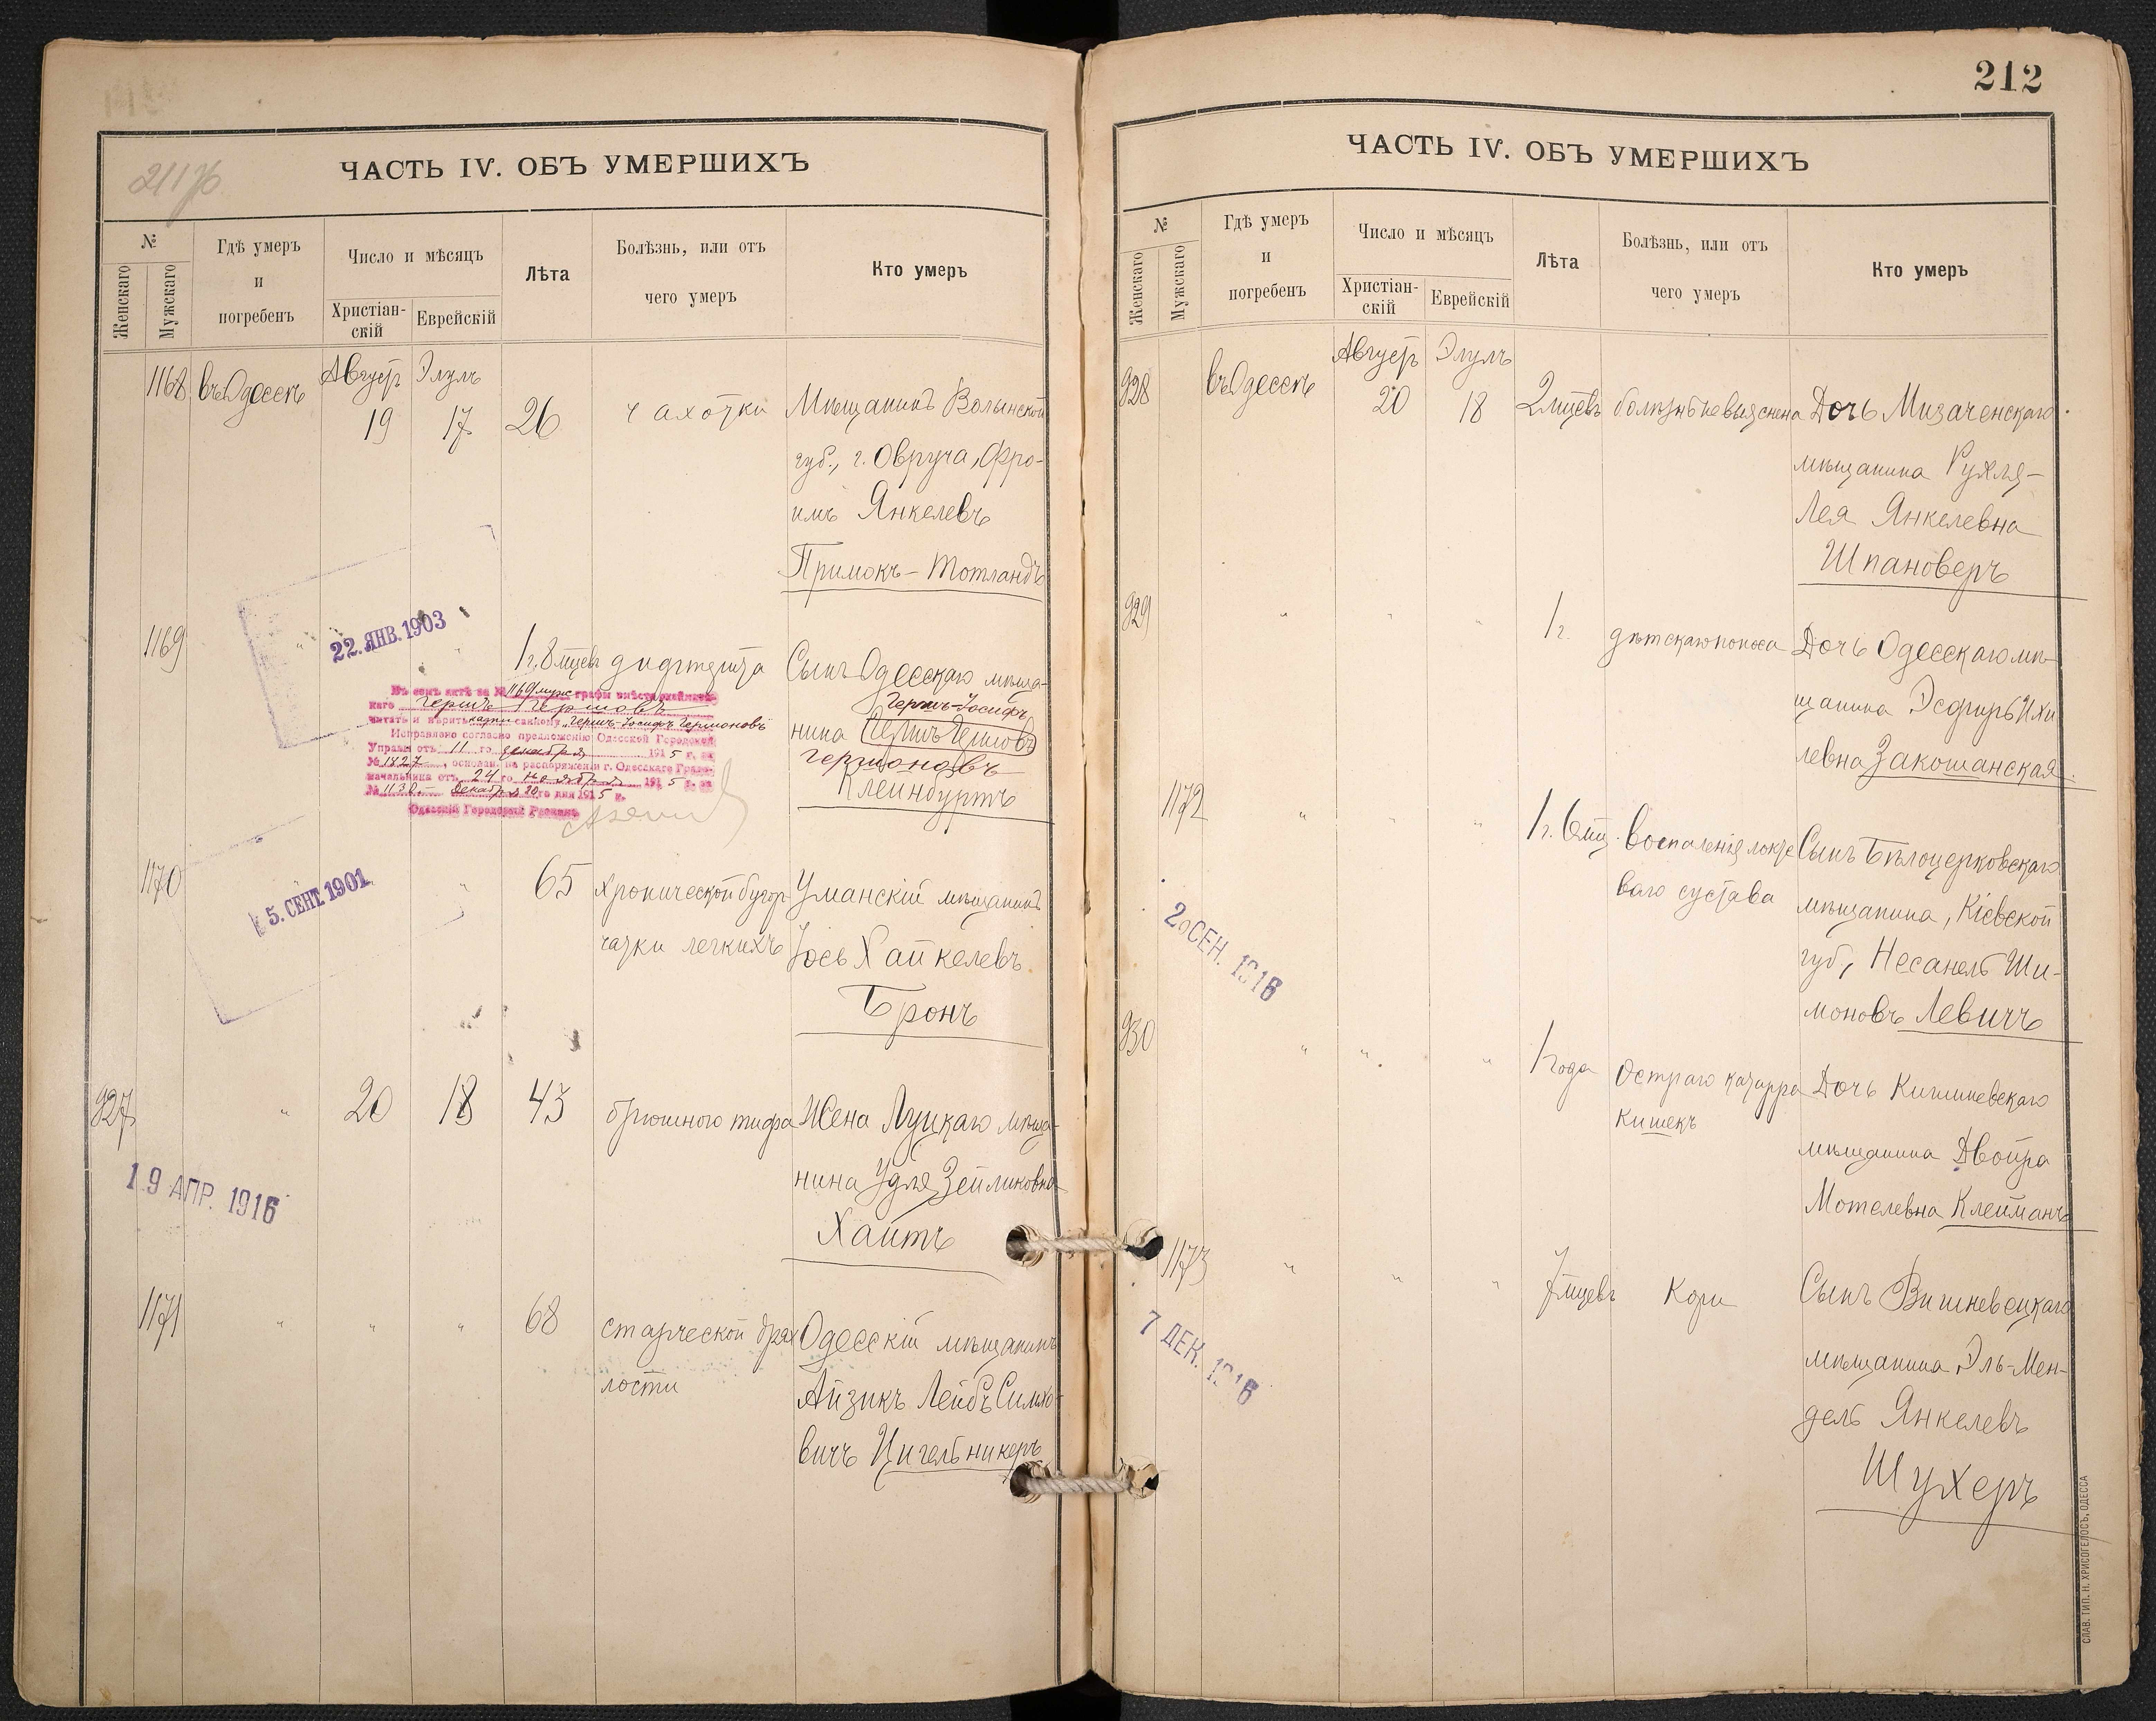 211 об
ЧАСТЬ IV. ОБЪ УМЕРШИХЪ
№
Женскаго
Мужскаго
Гдѣ умеръ
и
погребенъ
Число и мѣсяцъ
Христіан-
скій
Еврейскій
Лѣта
Болѣзнь, или отъ
чего умеръ
Кто умеръ
Август Элулъ
1168 въ Одессѣ 19 17 26 чахотки Мѣщанинъ Волынской
губ., г. Овруча, Фро-
имъ Янкелевъ
Примокъ-Тотландъ
1169 " " " 1 г. 8 мцевъ дифтерита Сынъ Одесскаго мѣща-
Гершъ-Іосифъ
нина
Гершоновъ
Клейнбуртъ
22. ЯНВ. 1903
Въ семъ актѣ за № 1169 муж графы вмѣсто
каго Гершъ Гершовъ
читать и вѣрить написанному „Гершъ-Іосифъ Гершоновъ"
Исправлено согласно предложенію Одесской Городской
Управы отъ 11 го декабря 1915 г. за
№ 1827, основан. на распоряженіи г. Одесскаго Градо-
начальника отъ 24 го ноября 1915 г. за
№ 1130. Декабря 20 го дня 1915 г.
Одесскій Городовой Раввинъ
1170 " 65 хронической бугор- Уманскій мѣщанинъ
чатки легкихъ Іось Хайкелевъ
Бронъ
5. СЕНТ. 1901
927 " 20 18 43 брюшного тифа Жена Луцкаго мѣща-
нина Удля Зейликовна
Хаитъ
19 АПР. 1916
1171 " " " 68 старческой дрях Одесскій мѣщанинъ
лости Айзикъ Лейбъ Симхо-
вичъ Цигельникеръ
212
ЧАСТЬ IV. ОБЪ УМЕРШИХЪ
№
Женскаго
Мужскаго
Гдѣ умеръ
и
погребенъ
Число и мѣсяцъ
Христіан-
скій
Еврейскій
Лѣта
Болѣзнь, или отъ
чего умеръ
Кто умеръ
Август Элулъ
928 въ Одессѣ 20 18 2 мцевъ болѣзнь невыяснена Дочь Мизаченскаго
мѣщанина Рухля-
Лея Янкелевна
Шпановеръ
929 " " " 1 г. дѣтскаго поноса Дочь Одесскаго мѣ-
щанина Эсфирь Ихи
левна Закошанская
1172 " " " 1 г. 6 мц. воспаленія локте Сынъ Бѣлоцерковскаго
ваго сустава мѣщанина, Кіевской
губ., Несанель Ши-
моновъ Левичъ
20 СЕН. 1916
930 " " " 1 года Остраго катарра Дочь Кишиневскаго
кишекъ мѣщанина Двойра
Мотелевна Клейманъ
1173 " " " 7 мцевъ Кори Сынъ Вишневецкаго
мѣщанина Эль-Мен-
дель Янкелевъ
Шухеръ
7 ДЕК. 1916
СЛАВ. ТИП. Н. ХРИСОГЕЛОСЪ, ОДЕССА